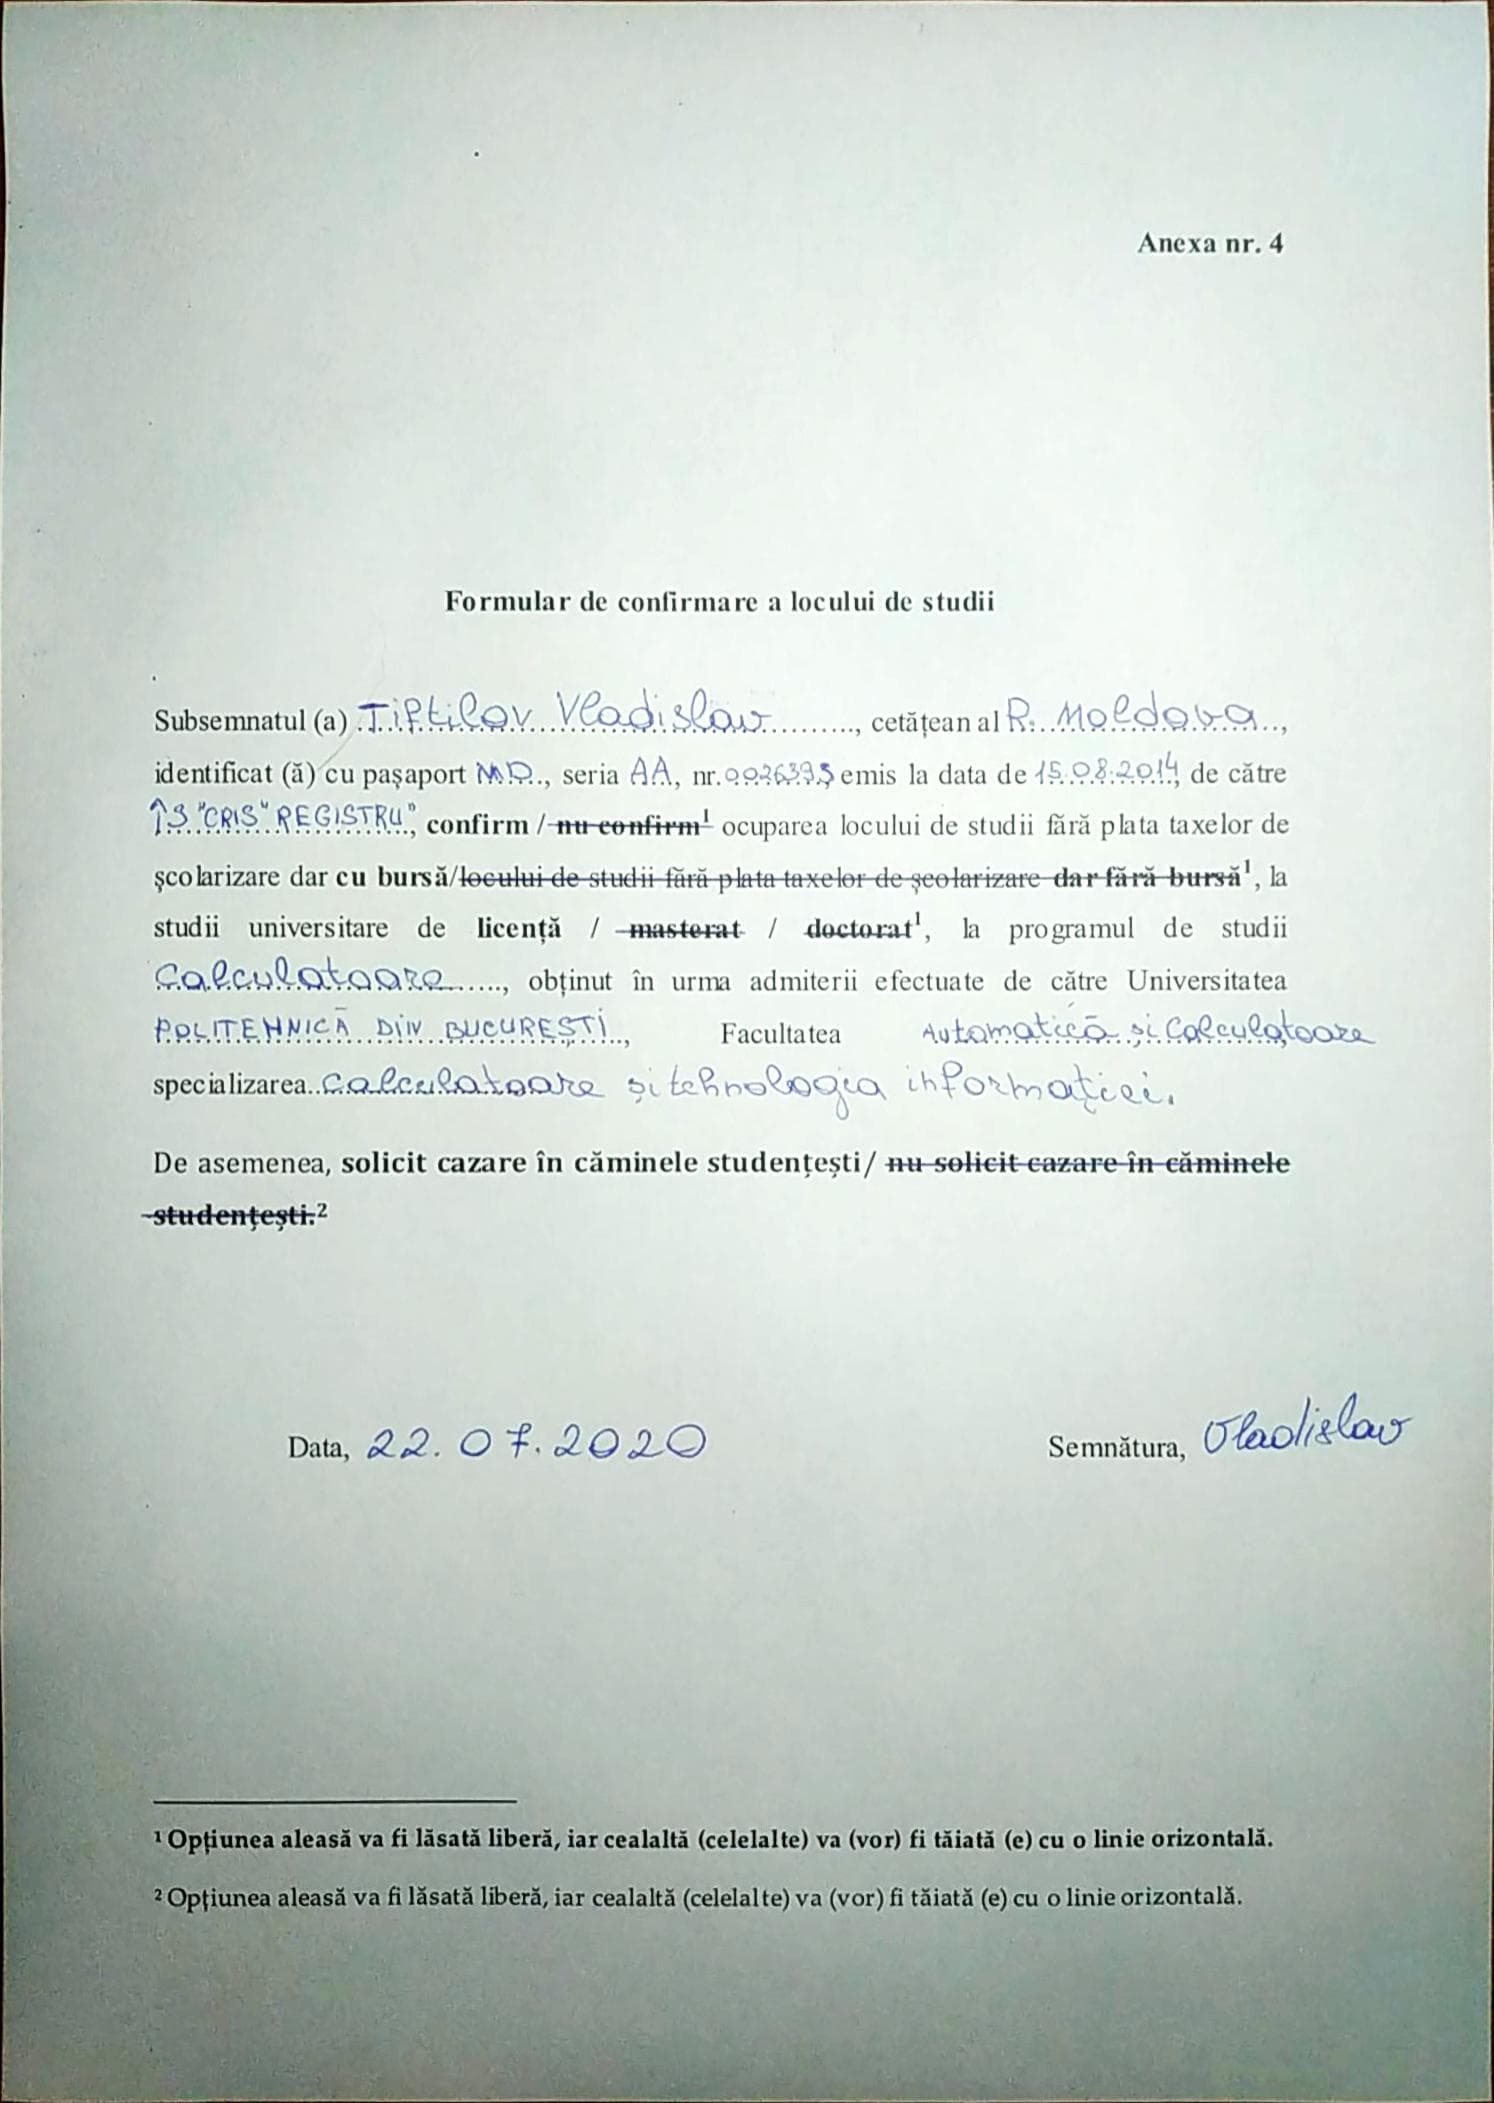 Anexa nr. 4
Formular de confirmare a locului de studii
Subsemnatul (a) Tiftilov Vladislav, cetățean al R. Moldova,
identificat (ă) cu pașaport MD, seria AA, nr. emis la data de 15.08.2014, de către
ÎS "CRIS "REGISTRU", confirm / nu confirm¹ ocuparea locului de studii fără plata taxelor de
școlarizare dar cu bursă/locului de studii fără plata taxelor de școlarizare dar fără bursă¹, la
studii universitare de licență / masterat / doctorat¹, la programul de studii
Calculatoare, obținut în urma admiterii efectuate de către Universitatea
POLITEHNICĂ DIN BUCUREȘTI, Facultatea Automatică și Calculatoare
specializarea Calculatoare și tehnologia informației.
De asemenea, solicit cazare în căminele studențești/ nu solicit cazare în căminele
studențești.²
Data, 22.07.2020 Semnătura, Vladislav
¹ Opțiunea aleasă va fi lăsată liberă, iar cealaltă (celelalte) va (vor) fi tăiată (e) cu o linie orizontală.
² Opțiunea aleasă va fi lăsată liberă, iar cealaltă (celelalte) va (vor) fi tăiată (e) cu o linie orizontală.